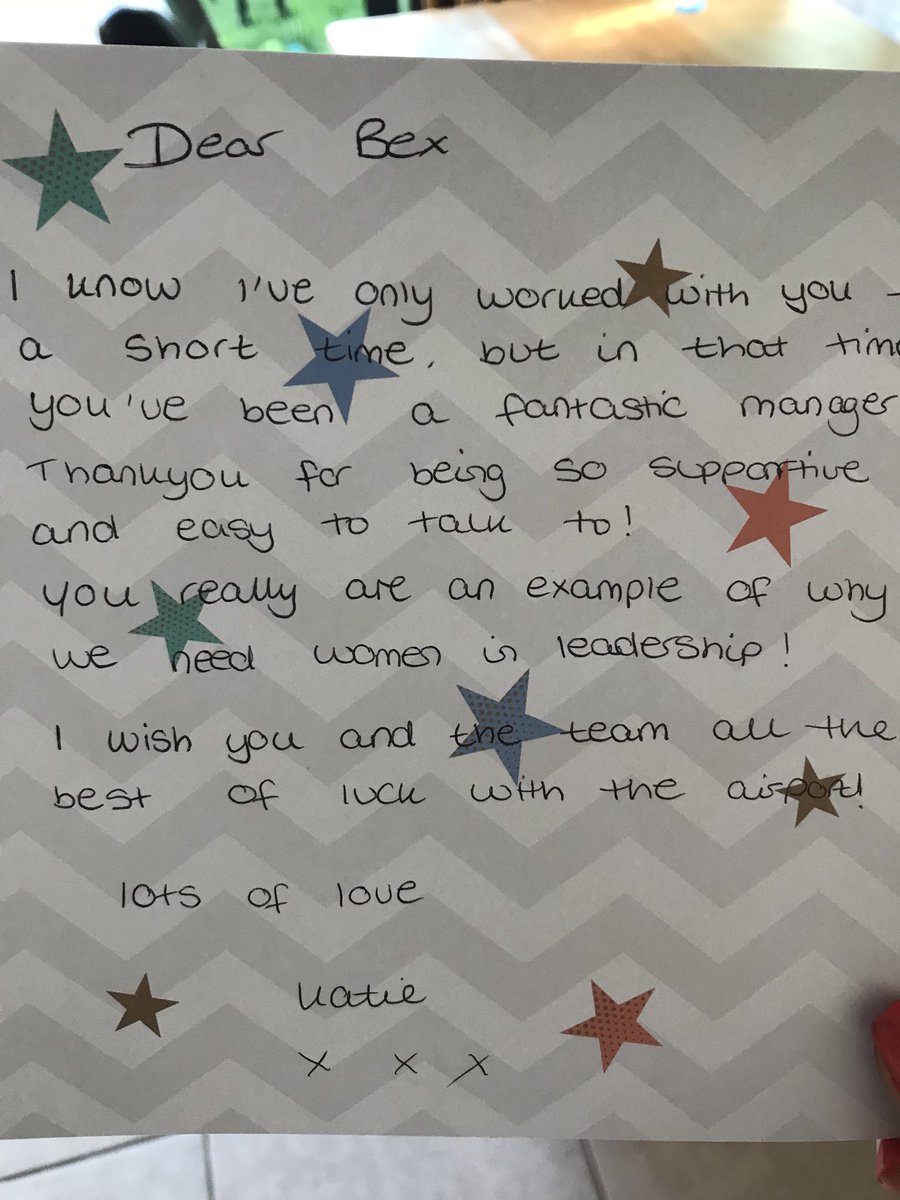 Dear Bex
I know I've only worked with you
a short time, but in that time
you've been a fantastic manager
Thankyou for being so supportive
and easy to talk to!
you really are an example of why
we need women in leadership!
I wish you and the team all the
best of luck with the airport!
lots of love
Katie
x x x